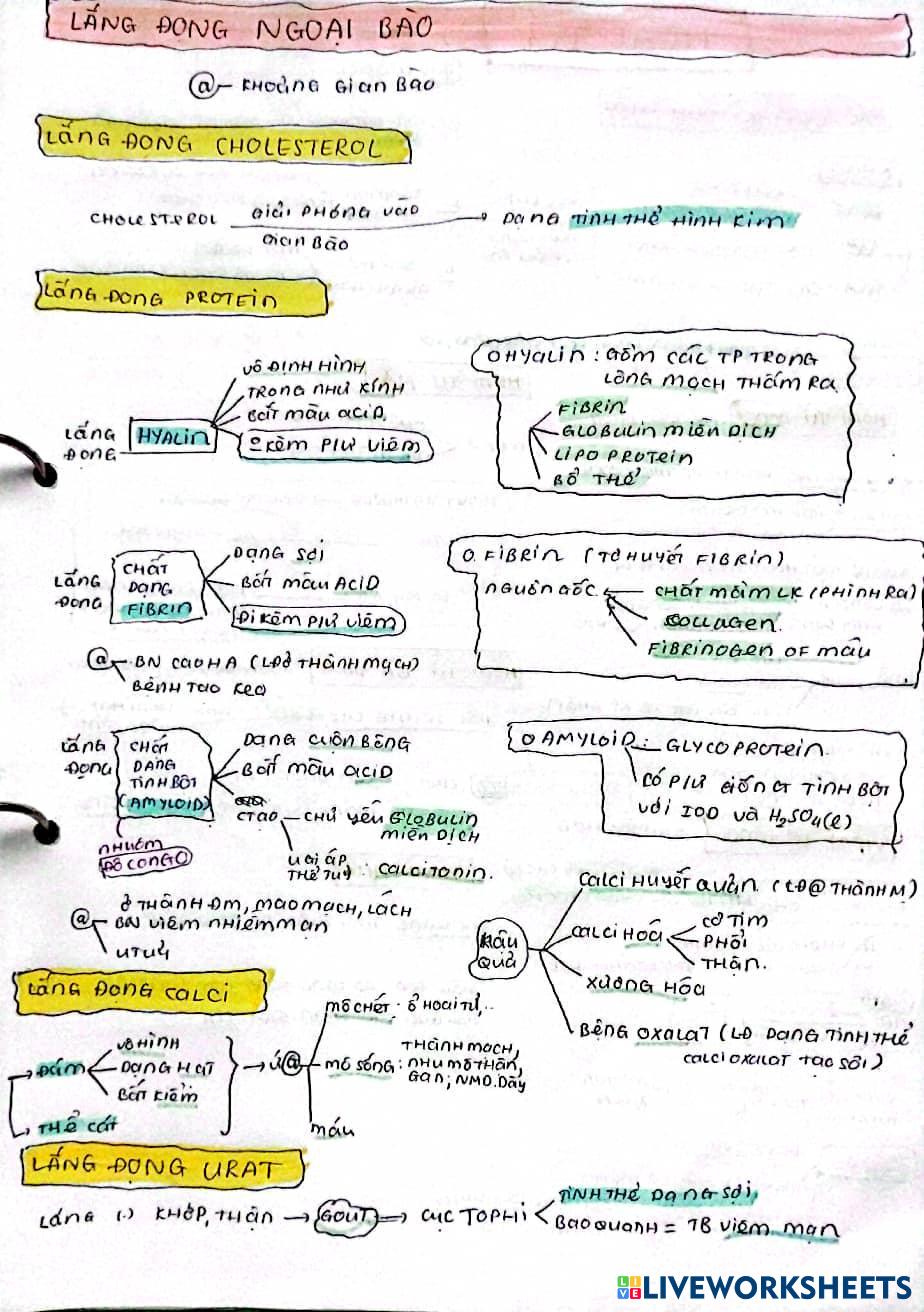 LẮNG ĐỌNG NGOẠI BÀO
@ - KHOẢNG GIAN BÀO
LẮNG ĐỌNG CHOLESTEROL
CHOLESTEROL GIẢI PHÓNG VÀO → DẠNG TINH THỂ HÌNH KIM
GIAN BÀO
LẮNG ĐỌNG PROTEIN
LẮNG ĐỌNG HYALIN
VÔ ĐỊNH HÌNH
TRONG NHƯ KÍNH
BẮT MÀU ACID
KÈM P/Ư VIÊM
O HYALIN : GỒM CÁC TP TRONG
LÒNG MẠCH THẤM RA
FIBRIN
GLOBULIN MIỄN DỊCH
LIPO PROTEIN
BỔ THỂ
LẮNG ĐỌNG CHẤT DẠNG FIBRIN
DẠNG SỢI
BẮT MÀU ACID
ĐI KÈM P/Ư VIÊM
@ BN CAO HA (LĐ Ở THÀNH MẠCH)
BỆNH TẠO KEO
O FIBRIN (TƠ HUYẾT FIBRIN)
NGUỒN GỐC
CHẤT MẦM LK (PHÌNH RA)
COLLAGEN
FIBRINOGEN OF MÁU
LẮNG ĐỌNG CHẤT DẠNG TINH BỘT (AMYLOID)
DẠNG CUỘN BÔNG
BẮT MÀU ACID
CTẠO - CHỦ YẾU GLOBULIN
MIỄN DỊCH
U GIÁP
THỂ TUỶ : CALCITONIN.
NHUỘM
ĐỎ CONGO
O AMYLOID - GLYCOPROTEIN
CÓ P/Ư GIỐNG TINH BỘT
VỚI IOD VÀ H₂SO₄(l)
@ Ở THÀNH ĐM, MAO MẠCH, LÁCH
BN VIÊM NHIỄM MẠN
U TUỶ
LẮNG ĐỌNG CALCI
ĐÁM
VÔ HÌNH
DẠNG HẠT
BẮT KIỀM
THỂ CÁT
→ Ứ @
MÔ CHẾT : Ổ HOẠI TỬ,..
MÔ SỐNG : THÀNH MẠCH,
NHU MÔ THẬN,
GAN; NMD.DÀY
MÁU
HẬU QUẢ
CALCI HUYẾT QUẢN. (LĐ@ THÀNH M)
CALCI HOÁ
CƠ TIM
PHỔI
THẬN.
XƯƠNG HÓA
BỆNH OXALAT (LĐ DẠNG TINH THỂ
CALCI OXALAT TẠO SỎI)
LẮNG ĐỌNG URAT
LẮNG (.) KHỚP, THẬN → GOUT → CỤC TOPHI
TINH THỂ DẠNG SỢI
BAO QUANH = TB VIÊM MẠN
LIVEWORKSHEETS